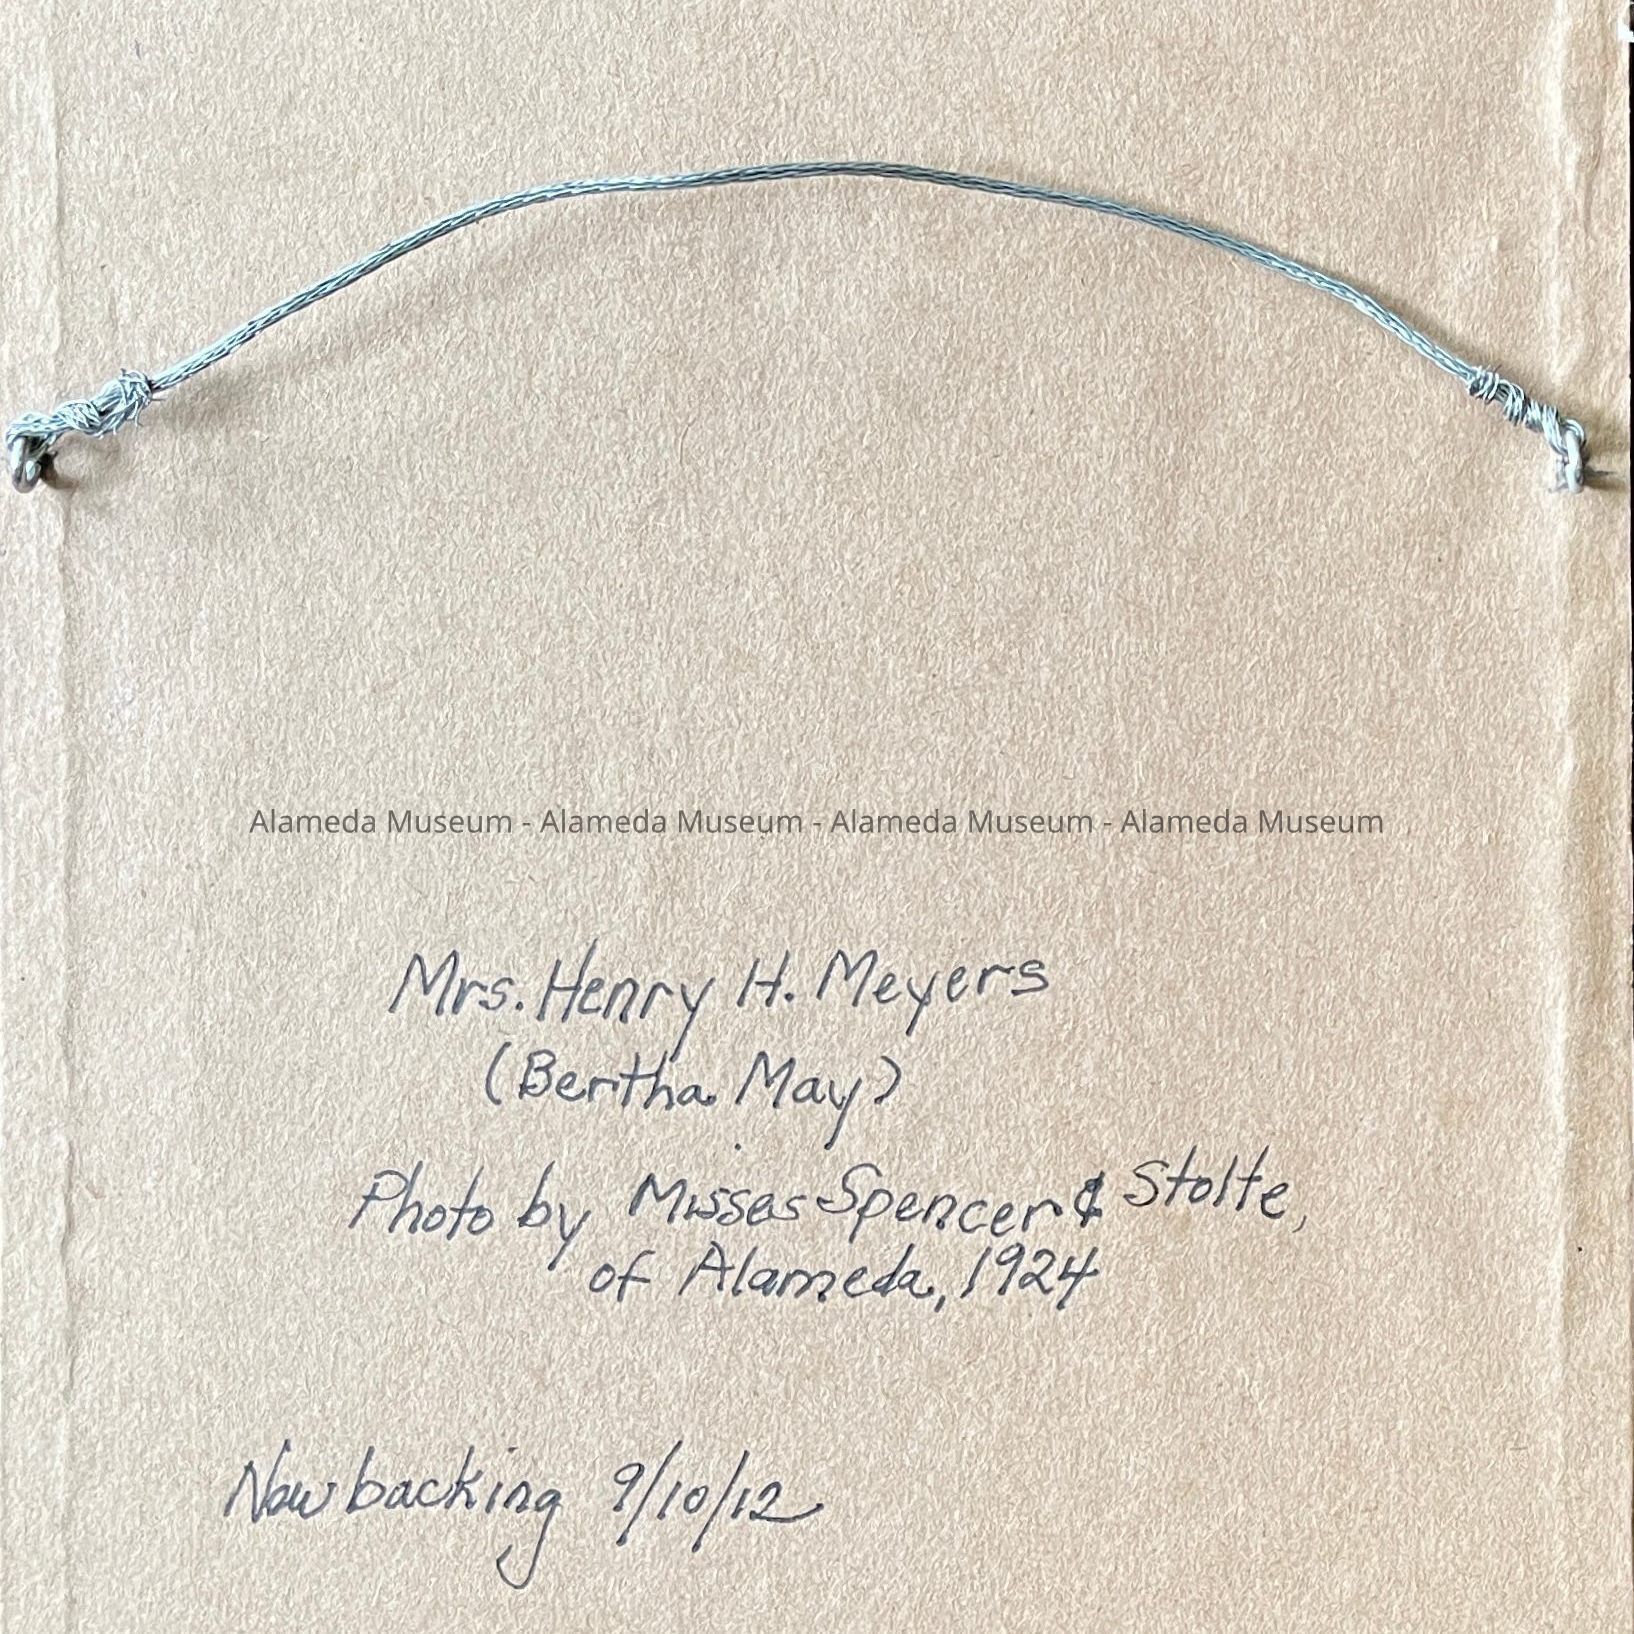 Alameda Museum - Alameda Museum - Alameda Museum - Alameda Museum
Mrs. Henry H. Meyers
(Bertha May)
Photo by Misses Spencer & Stolte,
of Alameda, 1924
New backing 9/10/12